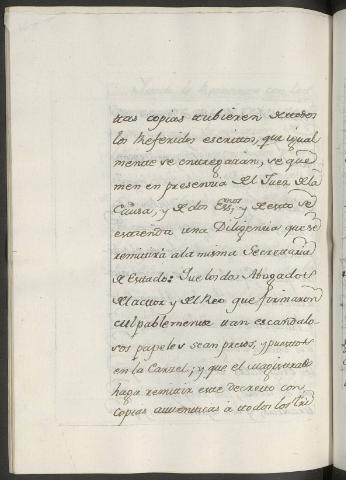 tras copias tubieren de todos
los Referidos escritos, que igual
mente se entregarán, se que
men en presencia del Juez de la
Causa, y de dos Essnos, y de esto se
estienda una Diligencia que se
remitirá a la misma Secretaria
de Estado: Que los dos Abogados
del actor y del Reo que firmaron
culpablemente tan escandalo
sos papeles sean presos, y puestos
en la Carzel; y que el magistrado
haga remitir este decreto con
copias autenticas à todos los Tri